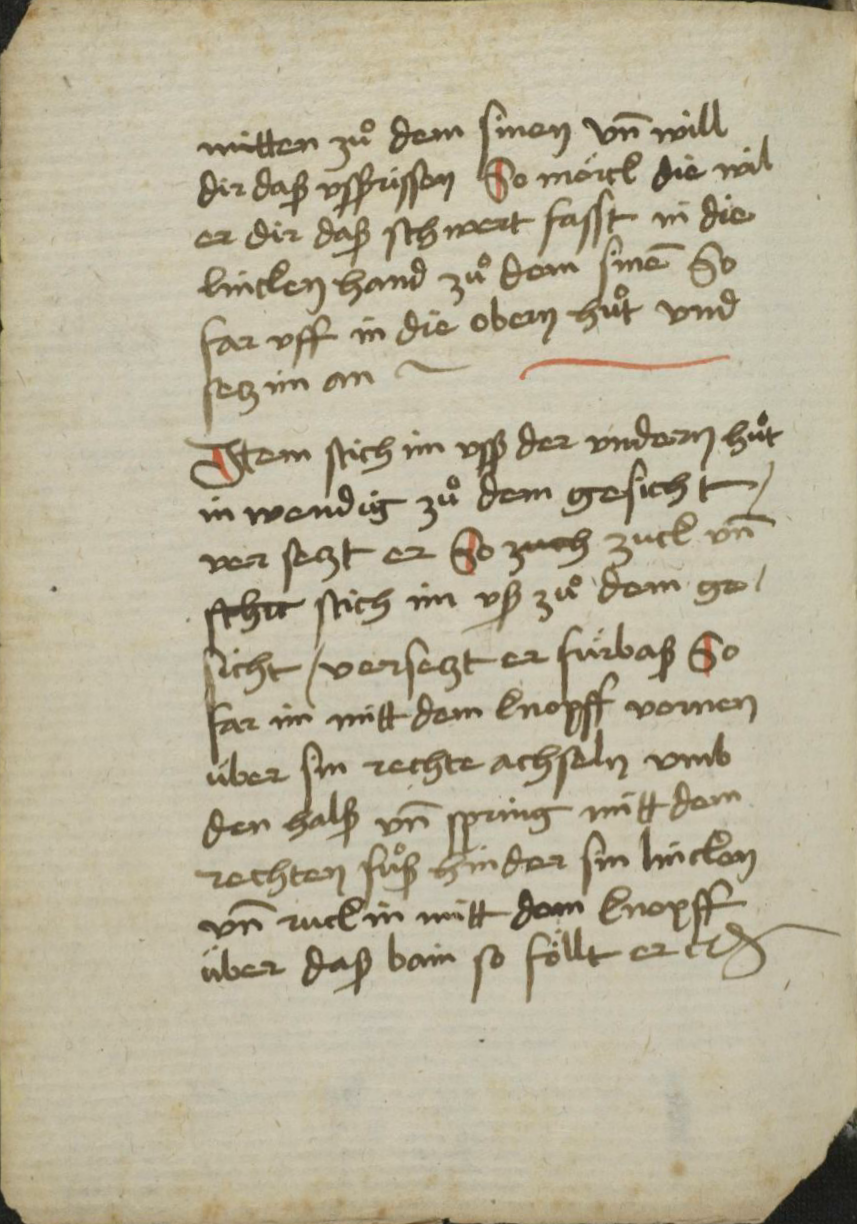 mitten zuͦ dem sinen vn̄ will
dir daß vßrissen So mörck die wil
er dir daß schwert fasst in die
lincken hand zuͦ dem sinē So
far vff in die obern huͦt vnd
setz im an ~
Item stich im vsß der vndern huͦt
in wendig zuͦ dem gesicht /
ver setzt er So zuch zuck vn̄
schit stich im vß zuͦ dem ge/
sicht / versetzt er fürbaß So
far im mitt dem knopff vornen
über sin rechte achseln vmb
den halß vn̄ spring mitt dem
rechten fuͦß hinder sin lincken
vn̄ ruck in mitt dem knopff
über daß bain so föllt er etc